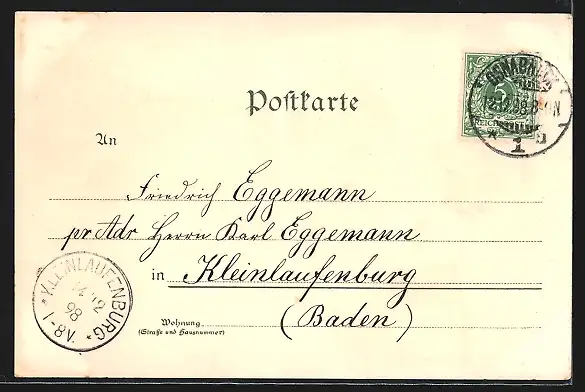 OSNABRÜCK
12.12.98.8-9N
* 1 b
5
REICHSPOST
Postkarte
An
Friedrich Eggemann
pr Adr Herrn Karl Eggemann
in Kleinlaufenburg
(Baden)
Wohnung
(Straße und Hausnummer)
KLEINLAUFENBURG
14 12
98
1-8V.